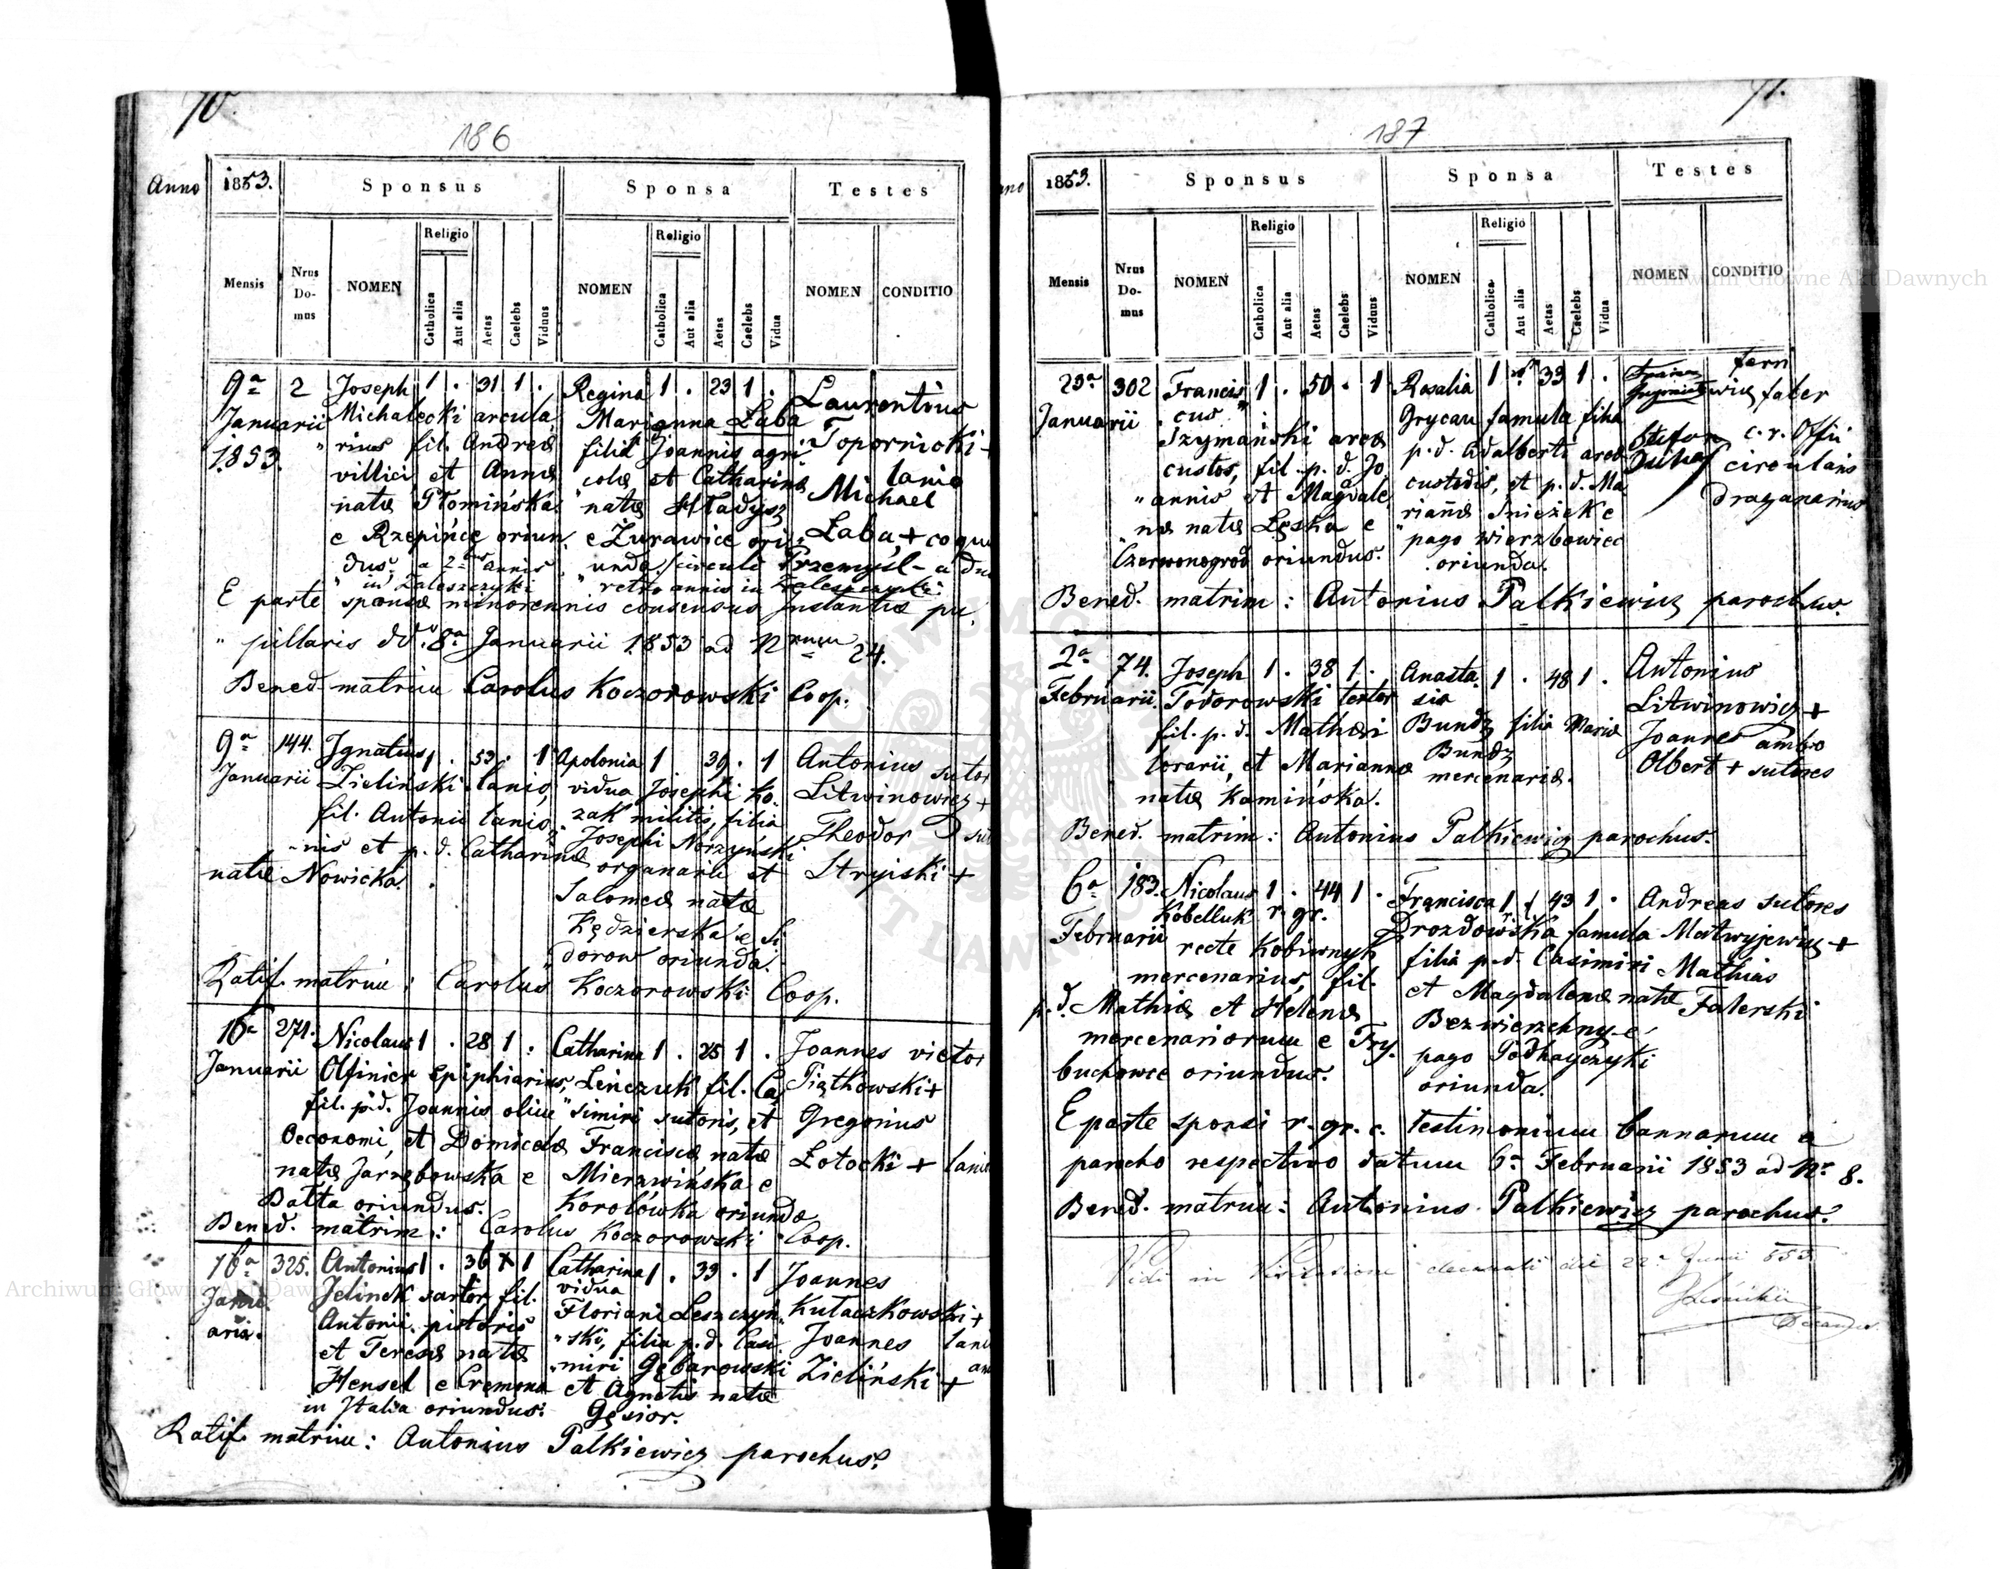 70.
186
Anno 1853. Sponsus Sponsa Testes
Mensis Nrus Domus NOMEN Religio Catholica Aut alia Aetas Caelebs Viduus NOMEN Religio Catholica Aut alia Aetas Caelebs Vidua NOMEN CONDITIO
9a Januarii 1853. 2
Joseph 1 . 31 1 .
Michalecki arcula
rius fil. Andreæ
villici et Annæ
natæ Płomińska
e Rzepińce oriun
dus a 2bus annis
in Zaleszczyki
Regina 1 . 23 1 .
Marianna Łaba
filia Joannis agri
colæ, et Catharinæ
natæ Hładysz
e Żurawice ori
unda/circulo Przemyśl - a
retro annis in Zaleszczyki.
Laurentius
Topornicki -
lanio
Michael
Łaba, +
E parte sponsæ minorennis consensus Instantiæ pu
pillaris dd. 8a Januarii 1853 ad Nrum 24.
Bened. matrim Carolus Koczorowski Coop.
9a Januarii 144.
Ignatius 1 . 53 . 1
Zieliński lanio,
fil. Antonii lanio
nis et p. d. Catharinæ
natæ Nowicka.
Apolonia 1 39 . 1
vidua Josephi Ko
zak militis, filia
Josephi Norzyński
organarii et
Salomeæ natæ
Kędzierska e Si
dorow oriunda.
Antonius sutor
Litwinowicz +
Theodor
Stryiski +
Ratif. matrim: Carolus Koczorowski Coop.
16a Januarii 271.
Nicolaus 1 . 28 1 .
Olfinier epiphiarius,
fil. p.d. Joannis olim
Oeconomi, et Domicelæ
natæ Jarzębowska e
Batta oriundus.
Catharina 1 . 25 1 .
Leńczuk fil. Ca
simiri sutoris, et
Franciscæ natæ
Mierzwińska e
Korolówka oriunda
Joannes vietor
Piątkowski +
Gregorius
Łotocki +
Bened. matrim: Carolus Koczorowski Coop.
16a 325.
Antonius 1 . 36 1
Jelinek sartor fil.
Antonii pistoris
et Teresæ natæ
Hensel e Cremona
in Italia oriundus.
Catharina 1 . 33 . 1
vidua
Floriani Leszczyń
ski, filia p. d. Casi
miri Gębarowski
et Agnetis natæ
Gęsior.
Joannes
Kułaczkowski +
Joannes
Zieliński +
Ratif. matrim: Antonius Palkiewicz parochus.
71.
187
1853. Sponsus Sponsa Testes
Mensis Nrus Domus NOMEN Religio Catholica Aut alia Aetas Caelebs Viduus NOMEN Religio Catholica Aut alia Aetas Caelebs Vidua NOMEN CONDITIO
Januarii 302
Francis 1 . 50 . 1
cus
Szymański arcæ
custos, fil. p. d. Jo
annis et Magdale
næ natæ Lęska e
Czerwonogrod oriundus.
Rosalia 1 33 1 .
Grycau famula filia
p. d. Adalberti arcæ
custodis, et p. d. Ma
riannæ Snieżek e
pago Wierzbowiec
oriunda.
faber
Stefan c. r. Offii
circularis
draganarius
Bened. matrim: Antonius Palkiewicz parochus.
2a Februarii 74.
Joseph 1 . 38 1 .
Todorowski textor
fil. p. d. Mathæi
torarii, et Mariannæ
natæ Kamińska.
Anasta 1 . 48 1 .
sia
Bundz filia Mariæ
Bundz
mercenariæ.
Antonius
Litwinowicz +
Joannes ambo
Olbert + sutores
Bened. matrim: Antonius Palkiewicz parochus.
6a Februarii 183.
Nicolaus 1 . 44 1 .
Kobelluk r. gr.
recte Kobiwnyk
mercenarius, fil.
p. d. Mathiæ et Helenæ
mercenariorum e Try
buchowce oriundus.
Francisca 1 43 1 .
Drozdowska famula
filia p. d. Casimiri
et Magdalenæ natæ
Bezwierzchny e
pago Podhayczyki
oriunda.
Andreas sutores
Matwyjewicz +
Mathias
Falerski
E parte sponsi r. gr. c. testimonium bannorum a
parocho respectivo datum 6a Februarii 1853 ad Nr. 8.
Bened. matrim: Antonius Palkiewicz parochus.
Vidi in Visitatione decanali die 22a Junii 853.
Archiwum Główne Akt Dawnych
Archiwum Główne Akt Dawnych